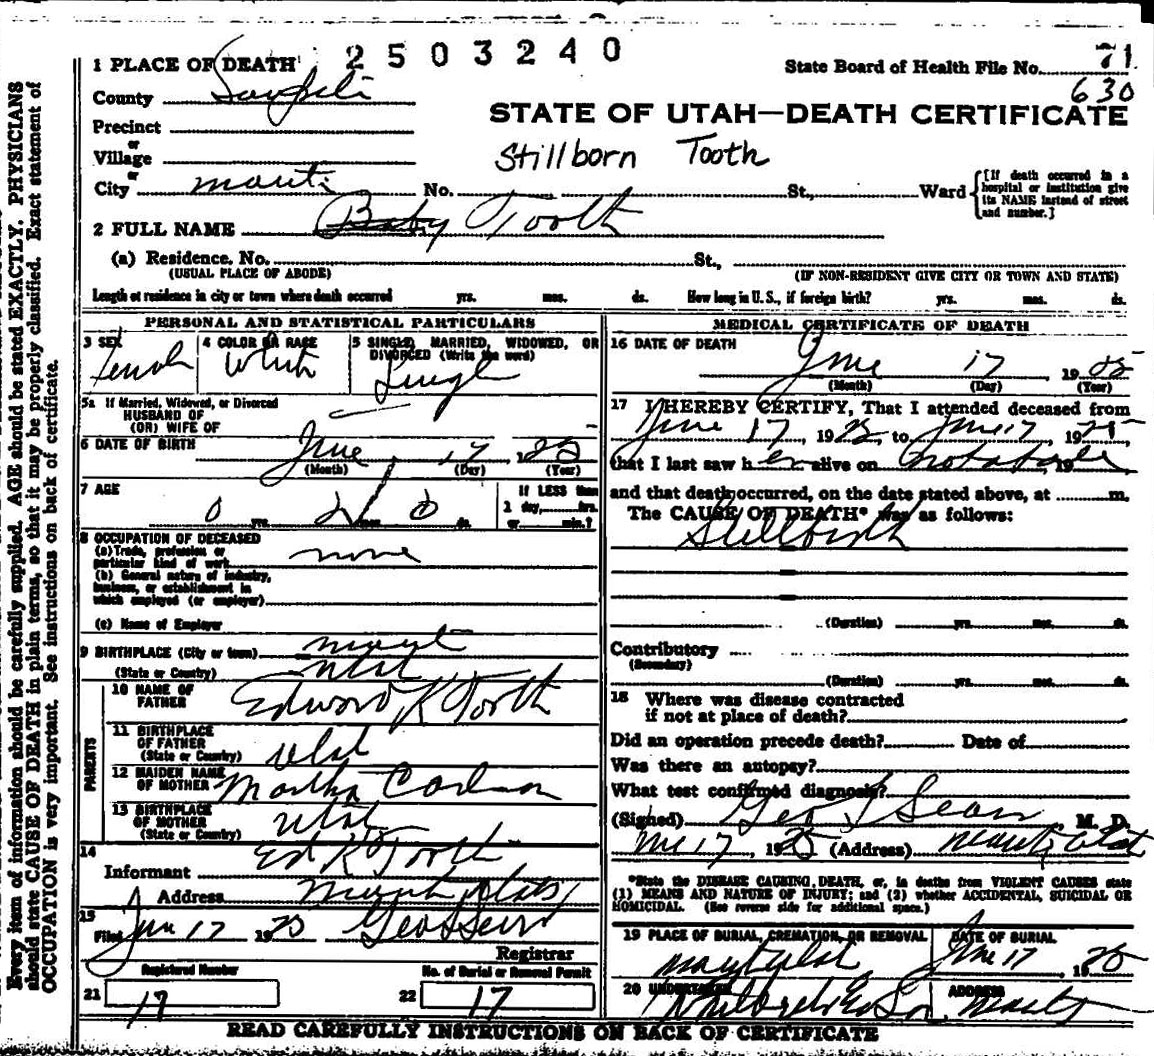 2503240
1 PLACE OF DEATH
State Board of Health File No. 71
630
County
STATE OF UTAH—DEATH CERTIFICATE
Precinct
or
Village
Stillborn Tooth
or
City Manti No. St., Ward
[If death occurred in a hospital or institution give its NAME instead of street and number.]
2 FULL NAME Baby Tooth
(a) Residence, No. St.,
(USUAL PLACE OF ABODE) (IF NON-RESIDENT GIVE CITY OR TOWN AND STATE)
Length of residence in city or town where death occurred yrs. mos. ds. How long in U. S., if foreign birth? yrs. mos. ds.
PERSONAL AND STATISTICAL PARTICULARS
3 SEX 4 COLOR OR RACE 5 SINGLE, MARRIED, WIDOWED, OR DIVORCED (Write the word)
Female White Single
5a If Married, Widowed, or Divorced
HUSBAND OF
(OR) WIFE OF
6 DATE OF BIRTH June 17 1925
(Month) (Day) (Year)
7 AGE 0 yrs. mos. 0 ds.
If LESS than
1 day, hrs.
or min.?
8 OCCUPATION OF DECEASED
(a) Trade, profession or
particular kind of work none
(b) General nature of industry,
business, or establishment in
which employed (or employer)
(c) Name of Employer
9 BIRTHPLACE (City or town) Manti
(State or Country) Utah
PARENTS
10 NAME OF
FATHER Edward K Tooth
11 BIRTHPLACE
OF FATHER
(State or Country) Utah
12 MAIDEN NAME
OF MOTHER Martha
13 BIRTHPLACE
OF MOTHER
(State or Country) Utah
14
Informant Ed K Tooth
Address Manti Utah
15
Filed Jun 17 1925 Geo L Sears
Registrar
Registered Number No. of Burial or Removal Permit
21 17 22 17
MEDICAL CERTIFICATE OF DEATH
16 DATE OF DEATH
June 17, 1925
(Month) (Day) (Year)
17 I HEREBY CERTIFY, That I attended deceased from
June 17, 1925, to June 17, 1925,
that I last saw her alive on not at all 19
and that death occurred, on the date stated above, at m.
The CAUSE OF DEATH* was as follows:
Stillbirth
(Duration) yrs. mos. ds.
Contributory
(Secondary)
(Duration) yrs. mos. ds.
18 Where was disease contracted
if not at place of death?
Did an operation precede death? Date of
Was there an autopsy?
What test confirmed diagnosis?
(Signed) Geo L Sears, M. D.
17, 1925 (Address) Manti, Utah
*State the DISEASE CAUSING DEATH, or, in deaths from VIOLENT CAUSES state
(1) MEANS AND NATURE OF INJURY; and (2) whether ACCIDENTAL, SUICIDAL OR
HOMICIDAL. (See reverse side for additional space.)
19 PLACE OF BURIAL, CREMATION, OR REMOVAL DATE OF BURIAL
Manti Utah June 17 1925
20 UNDERTAKER ADDRESS
Manti
READ CAREFULLY INSTRUCTIONS ON BACK OF CERTIFICATE
Every item of information should be carefully supplied. AGE should be stated EXACTLY. PHYSICIANS
should state CAUSE OF DEATH in plain terms, so that it may be properly classified. Exact statement of
OCCUPATION is very important. See instructions on back of certificate.